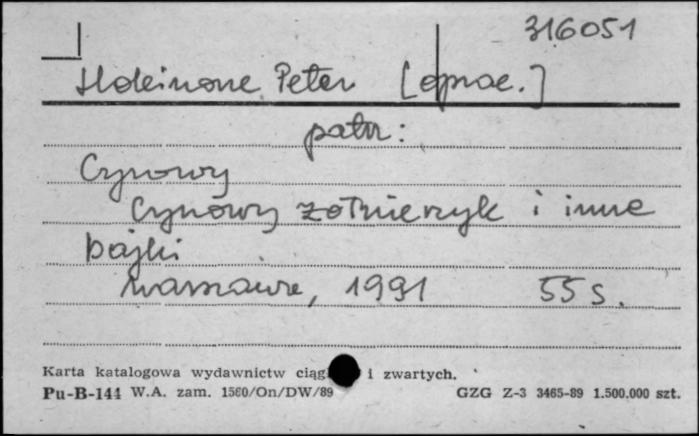 316051
Holeinone Peter [oprac.]
patrz:
Cynowy
Cynowy żołnierzyk i inne
bajki
Warszawa, 1991 55 s.
Karta katalogowa wydawnictw ciągł i zwartych.
Pu-B-144 W.A. zam. 1560/On/DW/89 GZG Z-3 3465-89 1.500.000 szt.